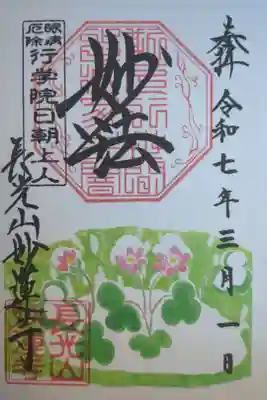 奉拝 令和七年三月一日
妙法
眼病
厄除
行学院日朝上人
長光山妙蓮寺
長光山